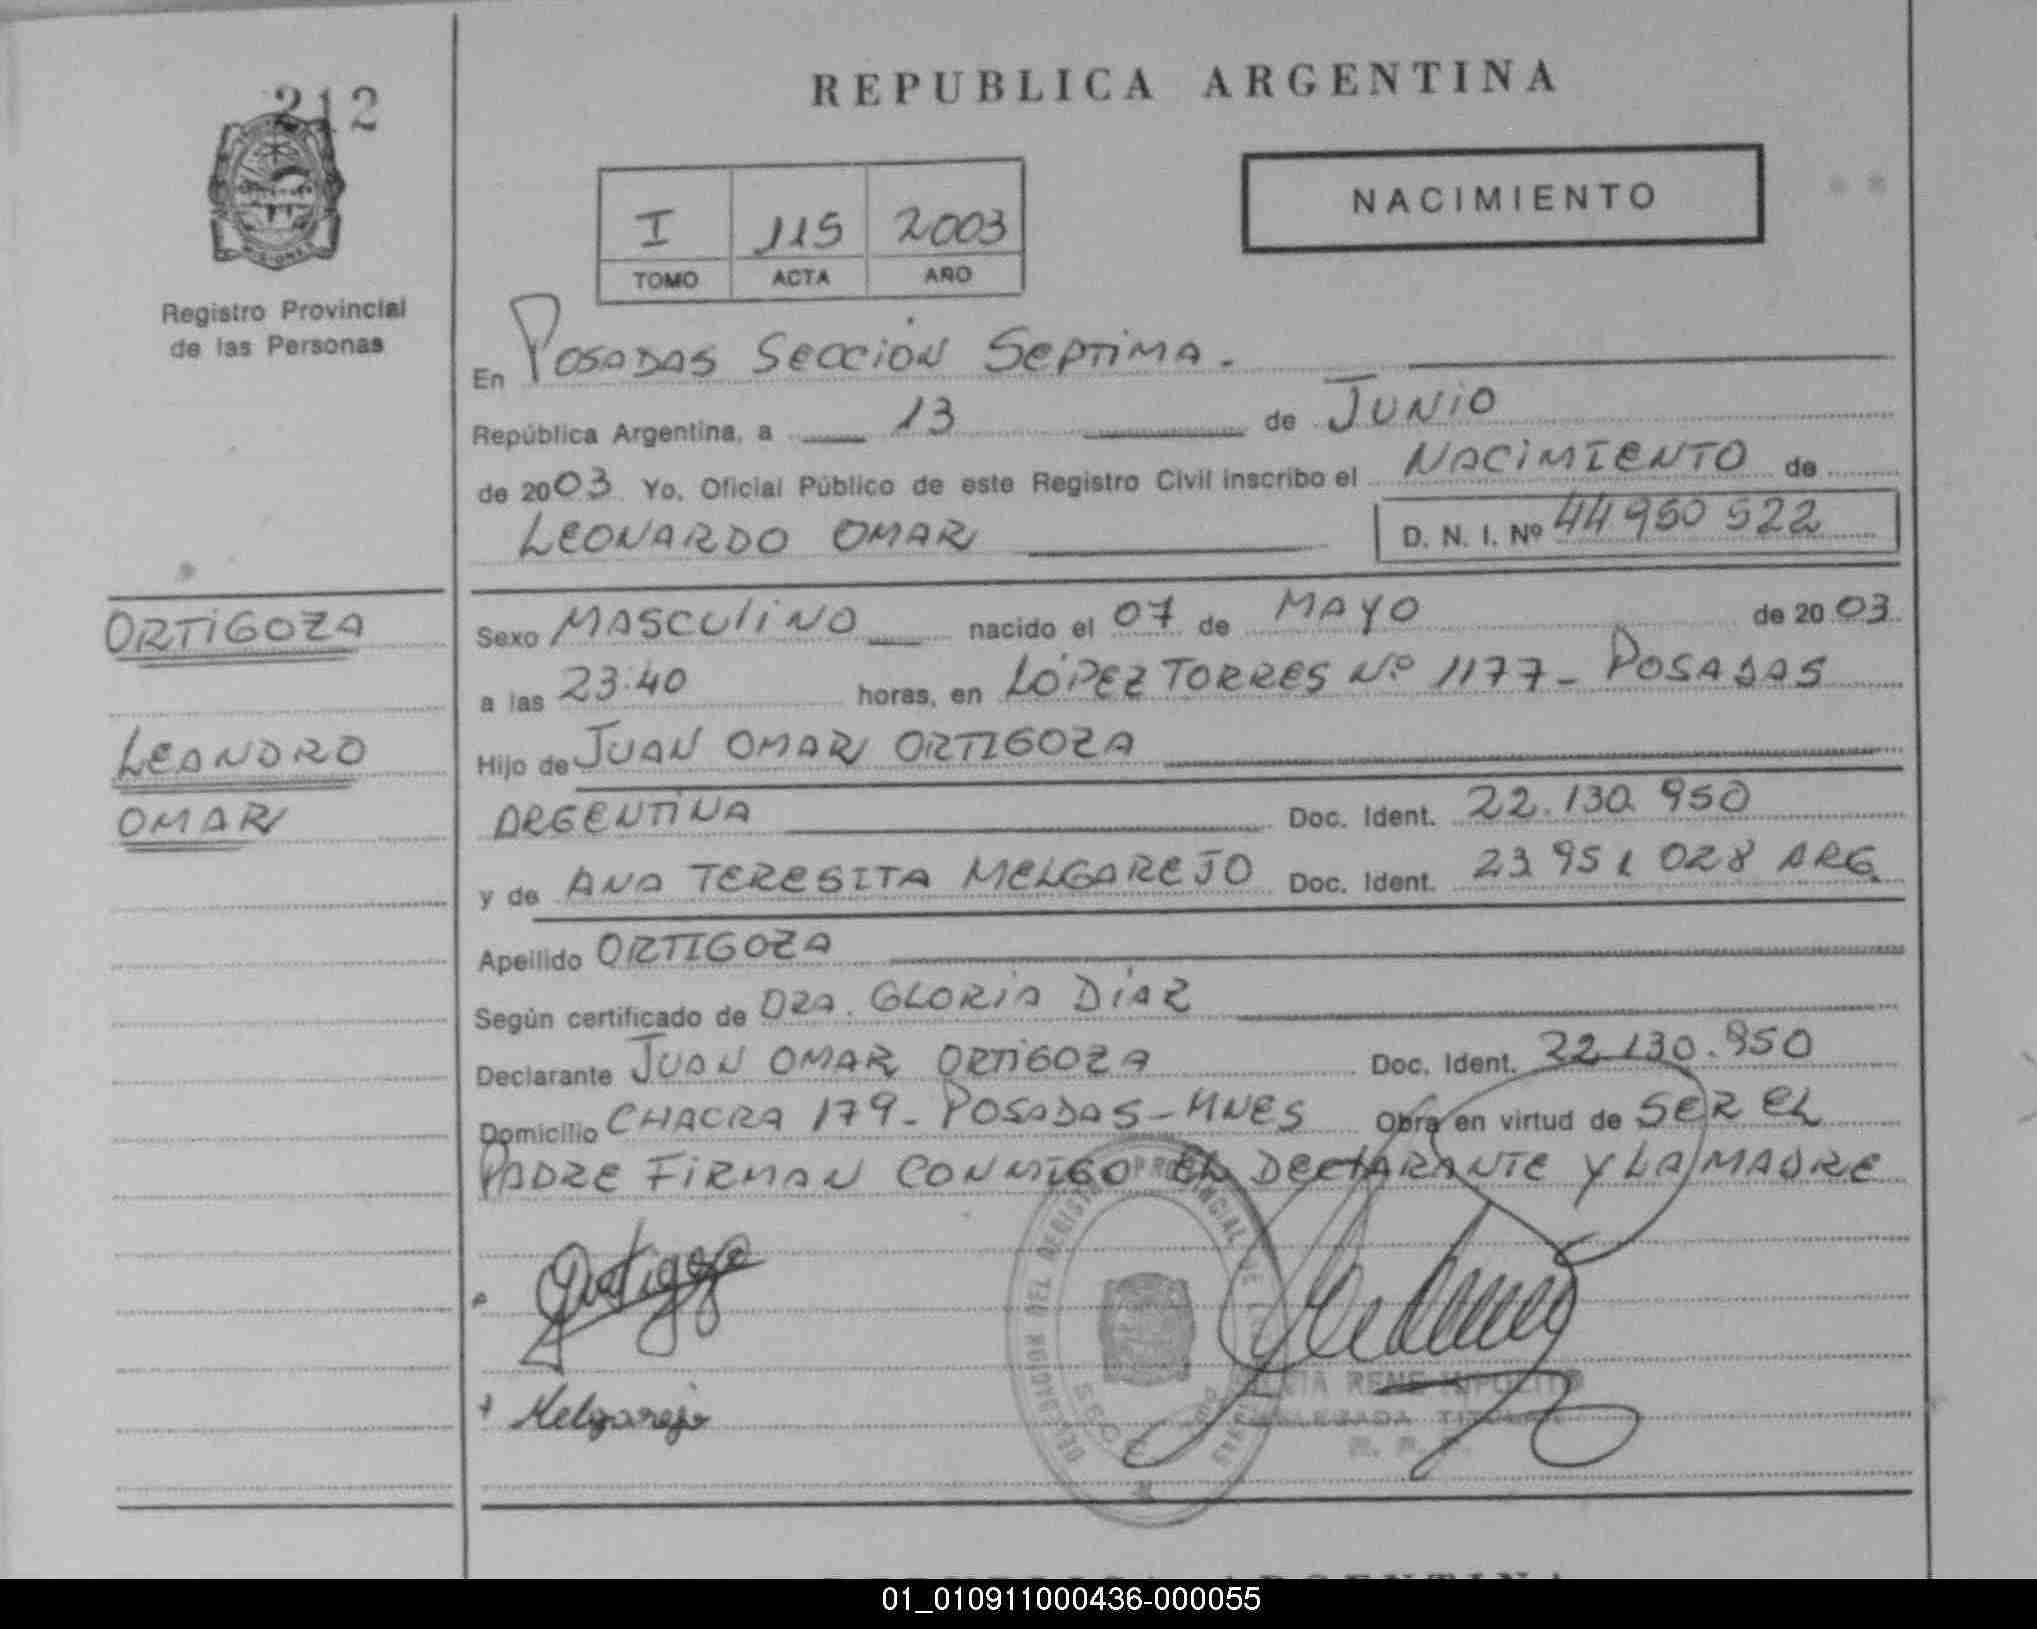 212
REPUBLICA ARGENTINA
NACIMIENTO
I 115 2003
TOMO ACTA AÑO
Registro Provincial
de las Personas
En POSADAS SECCIÓN SEPTIMA.
República Argentina, a 13 de JUNIO
de 2003 Yo, Oficial Público de este Registro Civil inscribo el NACIMIENTO de
LEONARDO OMAR D. N. I. Nº 44 950 522
ORTIGOZA
LEANDRO
OMAR
Sexo MASCULINO nacido el 07 de MAYO de 2003.
a las 23:40 horas, en LÓPEZ TORRES Nº 1177 - POSADAS
Hijo de JUAN OMAR ORTIGOZA
ARGENTINA Doc. Ident. 22.130.950
y de ANA TERESITA MELGAREJO Doc. Ident. 23 951 028 ARG.
Apellido ORTIGOZA
Según certificado de DRA. GLORIA DÍAZ
Declarante JUAN OMAR ORTIGOZA Doc. Ident. 22.130.950
Domicilio CHACRA 179 - POSADAS - MNES Obra en virtud de SER EL
PADRE FIRMAN CONMIGO EL DECLARANTE Y LA MADRE
Ortigoza
Melgarejo
DELEGACION DEL REGISTRO PROVINCIAL DE LAS
RENE HIPOLITO
TITULAR
01_010911000436-000055